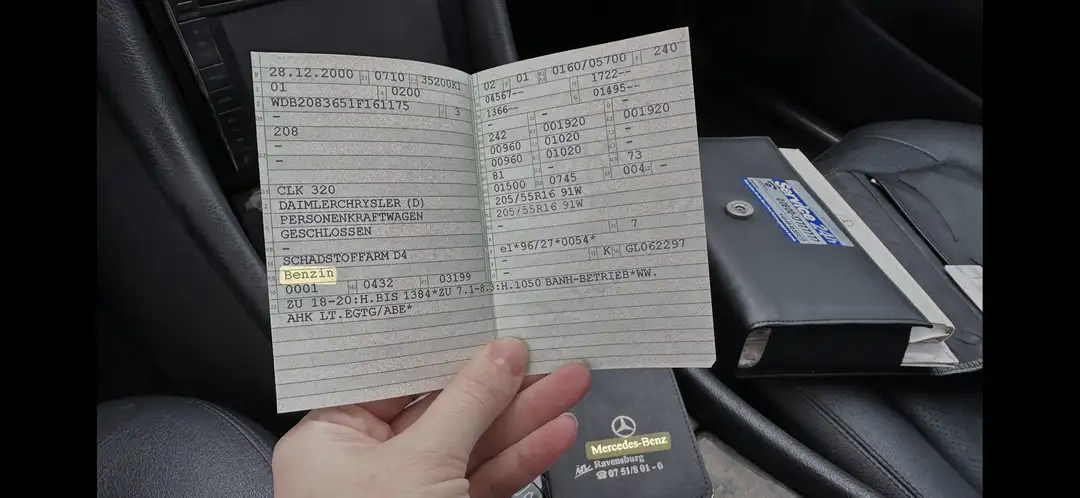 28.12.2000 0710 35200KI
01 0200
WDB2083651F161175 3
-
208
-
-
CLK 320
DAIMLERCHRYSLER (D)
PERSONENKRAFTWAGEN
GESCHLOSSEN
-
SCHADSTOFFARM D4
Benzin
0001 0432 03199
ZU 18-20:H.BIS 1384*ZU 7.1-8.3:H.1050 BANH-BETRIEB*WW.
AHK LT.EGTG/ABE*
02 01 0160/05700 240
04567-- 1722--
1366-- 01495--
- - -
242 001920 001920
00960 01020 -
00960 01020 -
81 - 73
01500 0745 004 -
205/55R16 91W
205/55R16 91W
-
- 7
e1*96/27*0054*
- K GL062297
-
Service 24h
Mercedes-Benz
Ravensburg
☎ 07 51/8 01 - 0